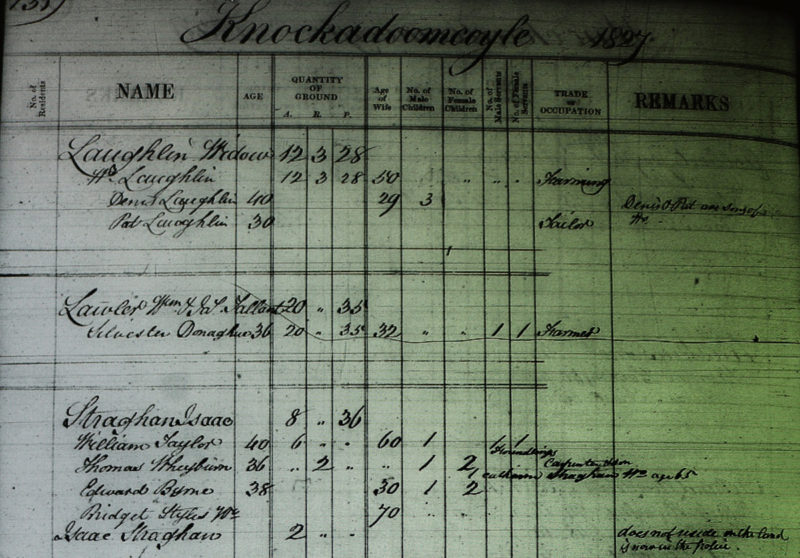 Knockadoomcoyle 1827
No. of Residents NAME AGE QUANTITY OF GROUND A. R. P. Age of Wife No. of Male Children No. of Female Children No. of Male Servants No. of Female Servants TRADE or OCCUPATION REMARKS
Laughlin Widow 12 3 28
Wd Laughlin 12 3 28 50 " " " Farming
Denis Laughlin 40 29 3 Denis & Pat are sons of
Pat Laughlin 30 Tailor Wd
Lawler Wm & Jas Tallant 20 " 35
Silvester Donaghue 36 20 " 35 32 " " 1 1 Farmer
Straghan Isaac 8 " 36
William Taylor 40 6 " " 60 1
Thomas Wheyburn 36 " 2 " " 1 2 Carpenter
Catherine Straghan Wd age 65
Edward Byrne 38 30 1 2
Bridget Styles Wd 70
Isaac Straghan 2 " " does not reside on the land
is now in the police